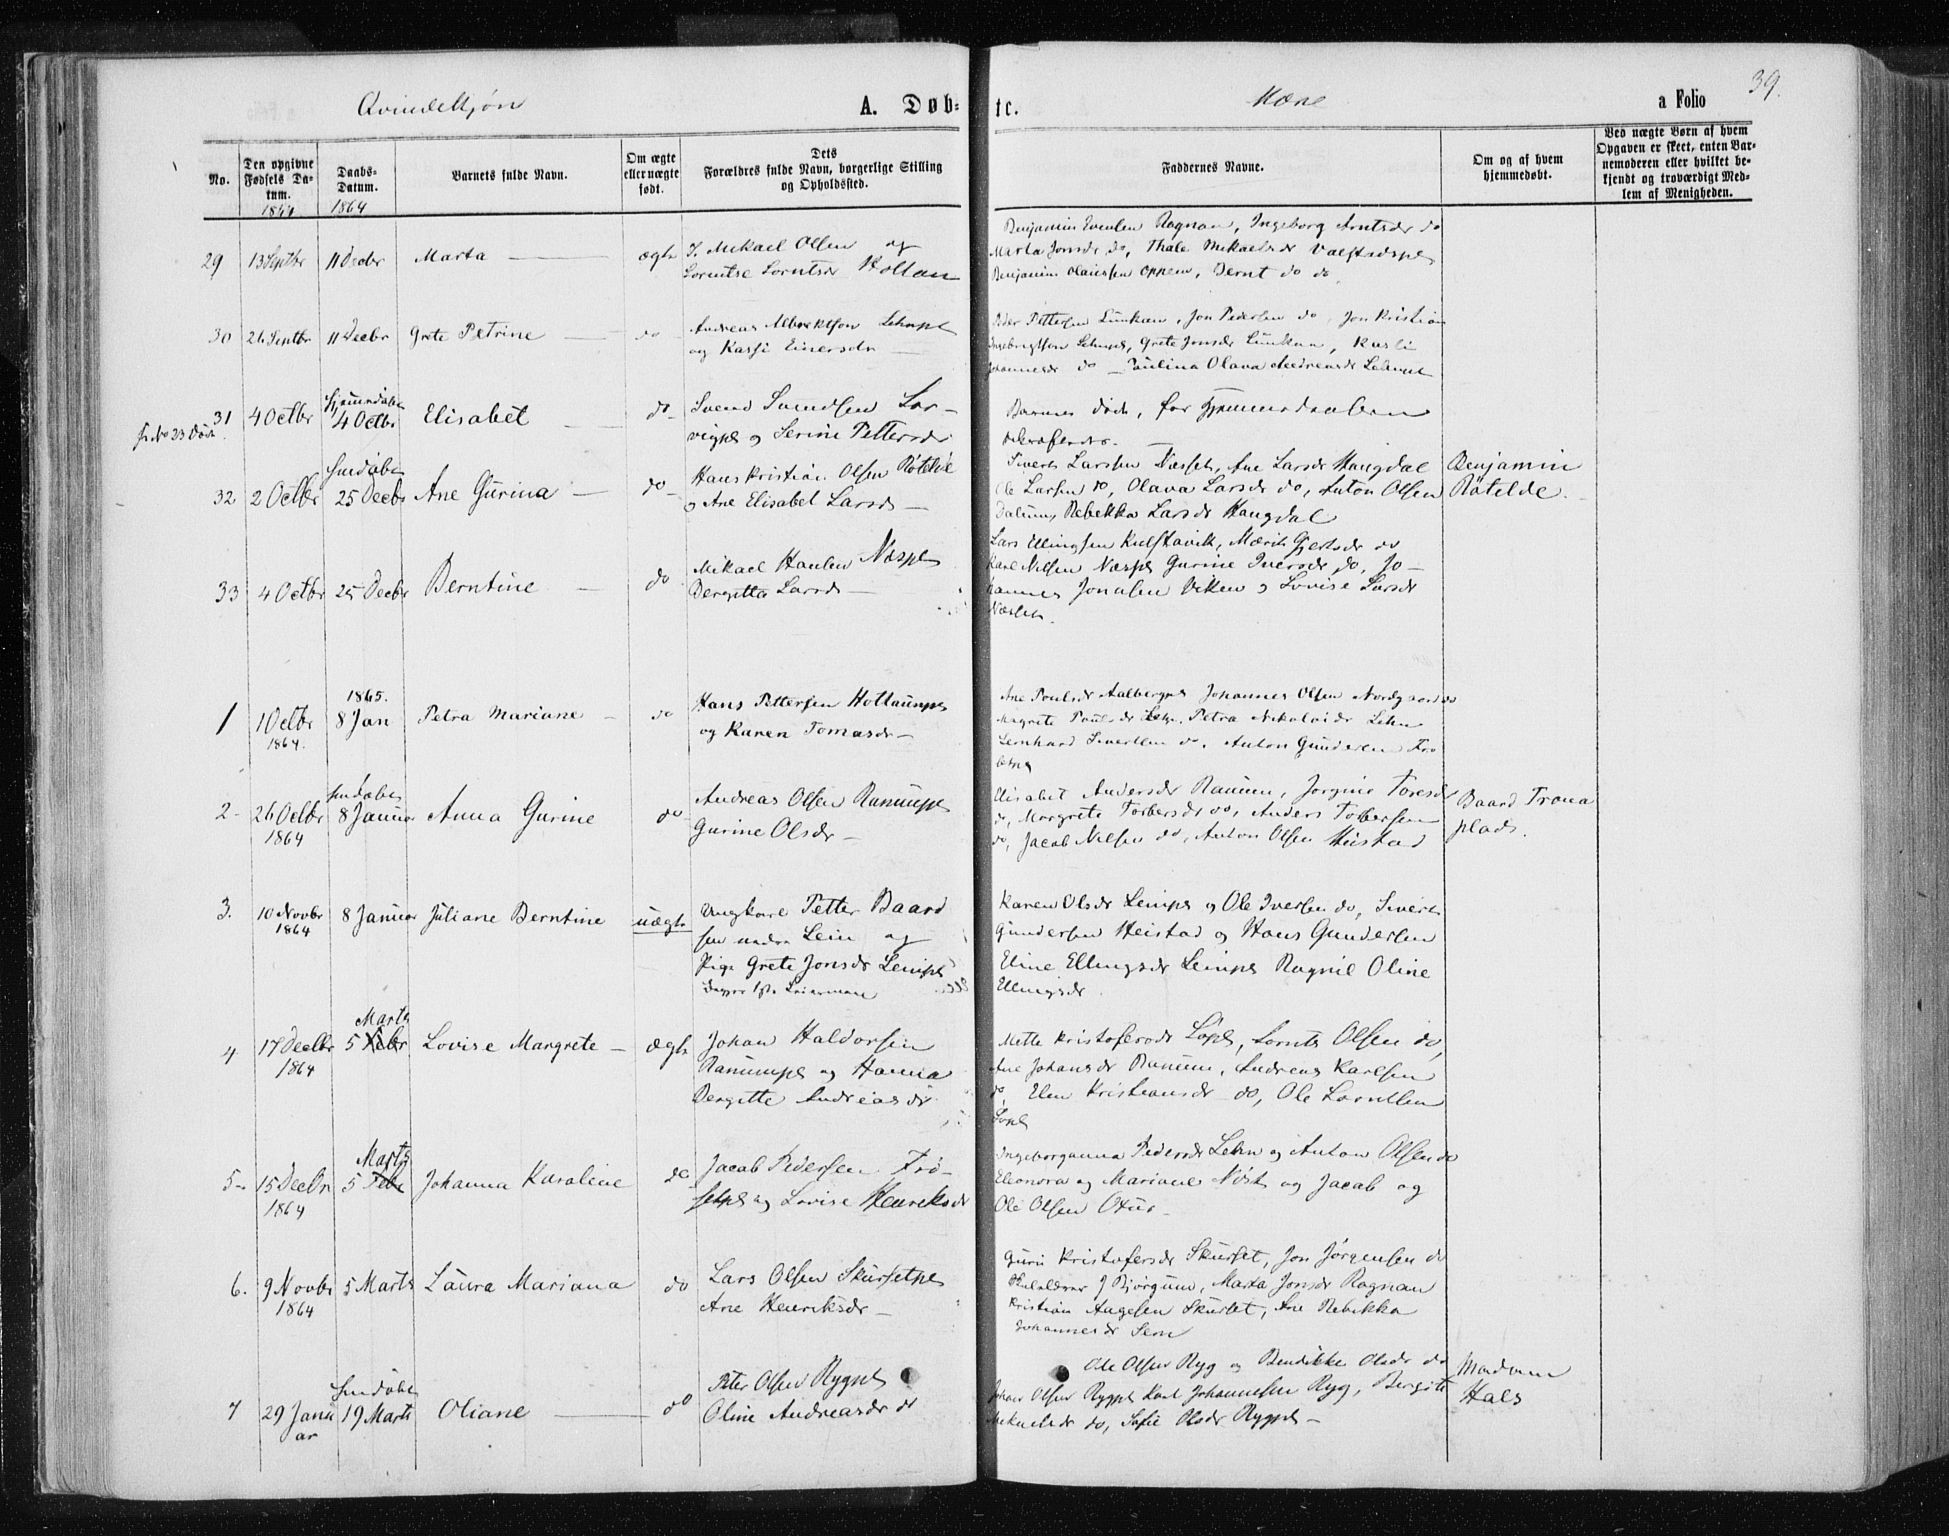 39.
Qvindekjøn A. Døb- te. Mære a Folio
No.
Den opgivne Fødsels Datum.
1864
Daabs-Datum.
1864
Barnets fulde Navn.
Om ægte eller uægte født.
Dets Forældres fulde Navn, borgerlige Stilling og Opholdssted.
Faddernes Navne.
Om og af hvem hjemmedøbt.
Ved uægte Børn af hvem Opgaven er skeet, enten Barnemoderen eller hvilket bekjendt og troværdigt Medlem af Menigheden.
29 13 Septbr 11 Decbr Marta ægte
Mikael Olsen og
Holtan
Benjamin Evensen Ragnan, Ingeborg Arntsdr do
Marta Jonsdr do, Thale Mikaelsdr
Benjamin Olaussen Oppem, Bernt do do
30 26 Septbr 11 Decbr Grete Petrine do
Andreas Albrektsen
og Einersdr
Peder Pettersen Lunkan, Jon Pedersen do, Jon Kristian
Grete Jonsdr Lunkan,
Johannesdr do Paulina Olava Andreasdr
31 4 Octbr 4 Octbr Elisabet do
Svend Svendsen Lor-
vigpl og Serine Pettersdr
Barnet døde, før
32 2 Octbr 25 Decbr Ane Gurina do
Hans Kristian Olsen Røtelde
og Ane Elisabet Larsdr
Sivert Larssen Næsset, Ane Larsdr Haugdal
Ole Larsen do, Olava Larsdr do, Anton Olsen
Rebekka Larsdr Haugdal
Benjamin
Røtelde.
33 4 Octbr 25 Decbr Berntine do
Mikael Hansen Næspl
Bergitta Larsdr
Lars Ellingsen Kulstavik, Marit do
Karl Nilsen Næspl Gurine Iversdr do, Jo-
hannes Jonasen Viken og Lovise Larsdr
Næsset.
1865.
1 1 Octbr 8 Jan Petra Mariane do
1864.
Hans Pettersen
og Karen Tomasdr
Ane Paulsdr Aalbergpl Johannes Olsen
Magrete Paulsdr Petra Nikolaidr Lehn
Sivertsen do. Anton Gundersen Frø-
2 26 Octbr 8 Januar Anna Gurine do
1864
Andreas Olsen Ranumpl
Gurine Olsdr
Elisabet Andersdr Ranum, Jorgine Toresdr
do, Margrete Torbersdr do, Anders Torbersen
do, Jacob Nilsen do, Anton Olsen Heistad
Baard Trona
plads.
3. 10 Novbr 8 Januar Juliane Berntine uægte
1864
Ungkarl Petter Baard
sen Lein og
Pige Grete Jonsdr Leinpl
Karen Olsdr Leinpl og Ole Iversen do, Sivert
Gundersen Heistad og Hans Gundersen
Eline Ellingsdr Leinpl Ragnil Oline
Ellingsdr
Marts
4 17 Decbr 5 Febr Lovise Margrete ægte
1864
Johan Haldorsen
Ranumpl og Hanna
Bergitte Andreasdr
Mette Kristofersdr Løpl, Lornts Olsen do,
Ane Johansdr Ranum, Andreas Karlsen
do, Elen Kristiansdr do, Ole Lorntsen
Marts
5 15 Decbr 5 Febr Johanna Karoline do
1864
Jacob Pedersen Frø-
setpl og Lovise Henriksdr
Ingeborganna Pedersdr Lehn og Anton Olsen do
Eleonora og Mariane Nøst og Jacob og
Ole Olsen Oxur
6. 9 Novbr 5 Marts Laura Mariana do
1864
Lars Olsen Skursetpl
Ane Henriksdr
Guri Kristofersdr Skurset, Jon Jørgensen do
J Bjørgum, Marta Jonsdr Ragnan
Kristian Augesen Skurset, Ane Rebekka
Johannesdr Sem
7 29 Janu 19 Marts Oliane do
ar
Peter Olsen Rygpl
Oline Andreasdr
Ole Olsen Ryg og Bendikke Olsdr do
Johan Olsen Rygpl Karl Johannesen Ryg, Bergitte
do, Sofie Olsdr Rygpl
Madam
Hals